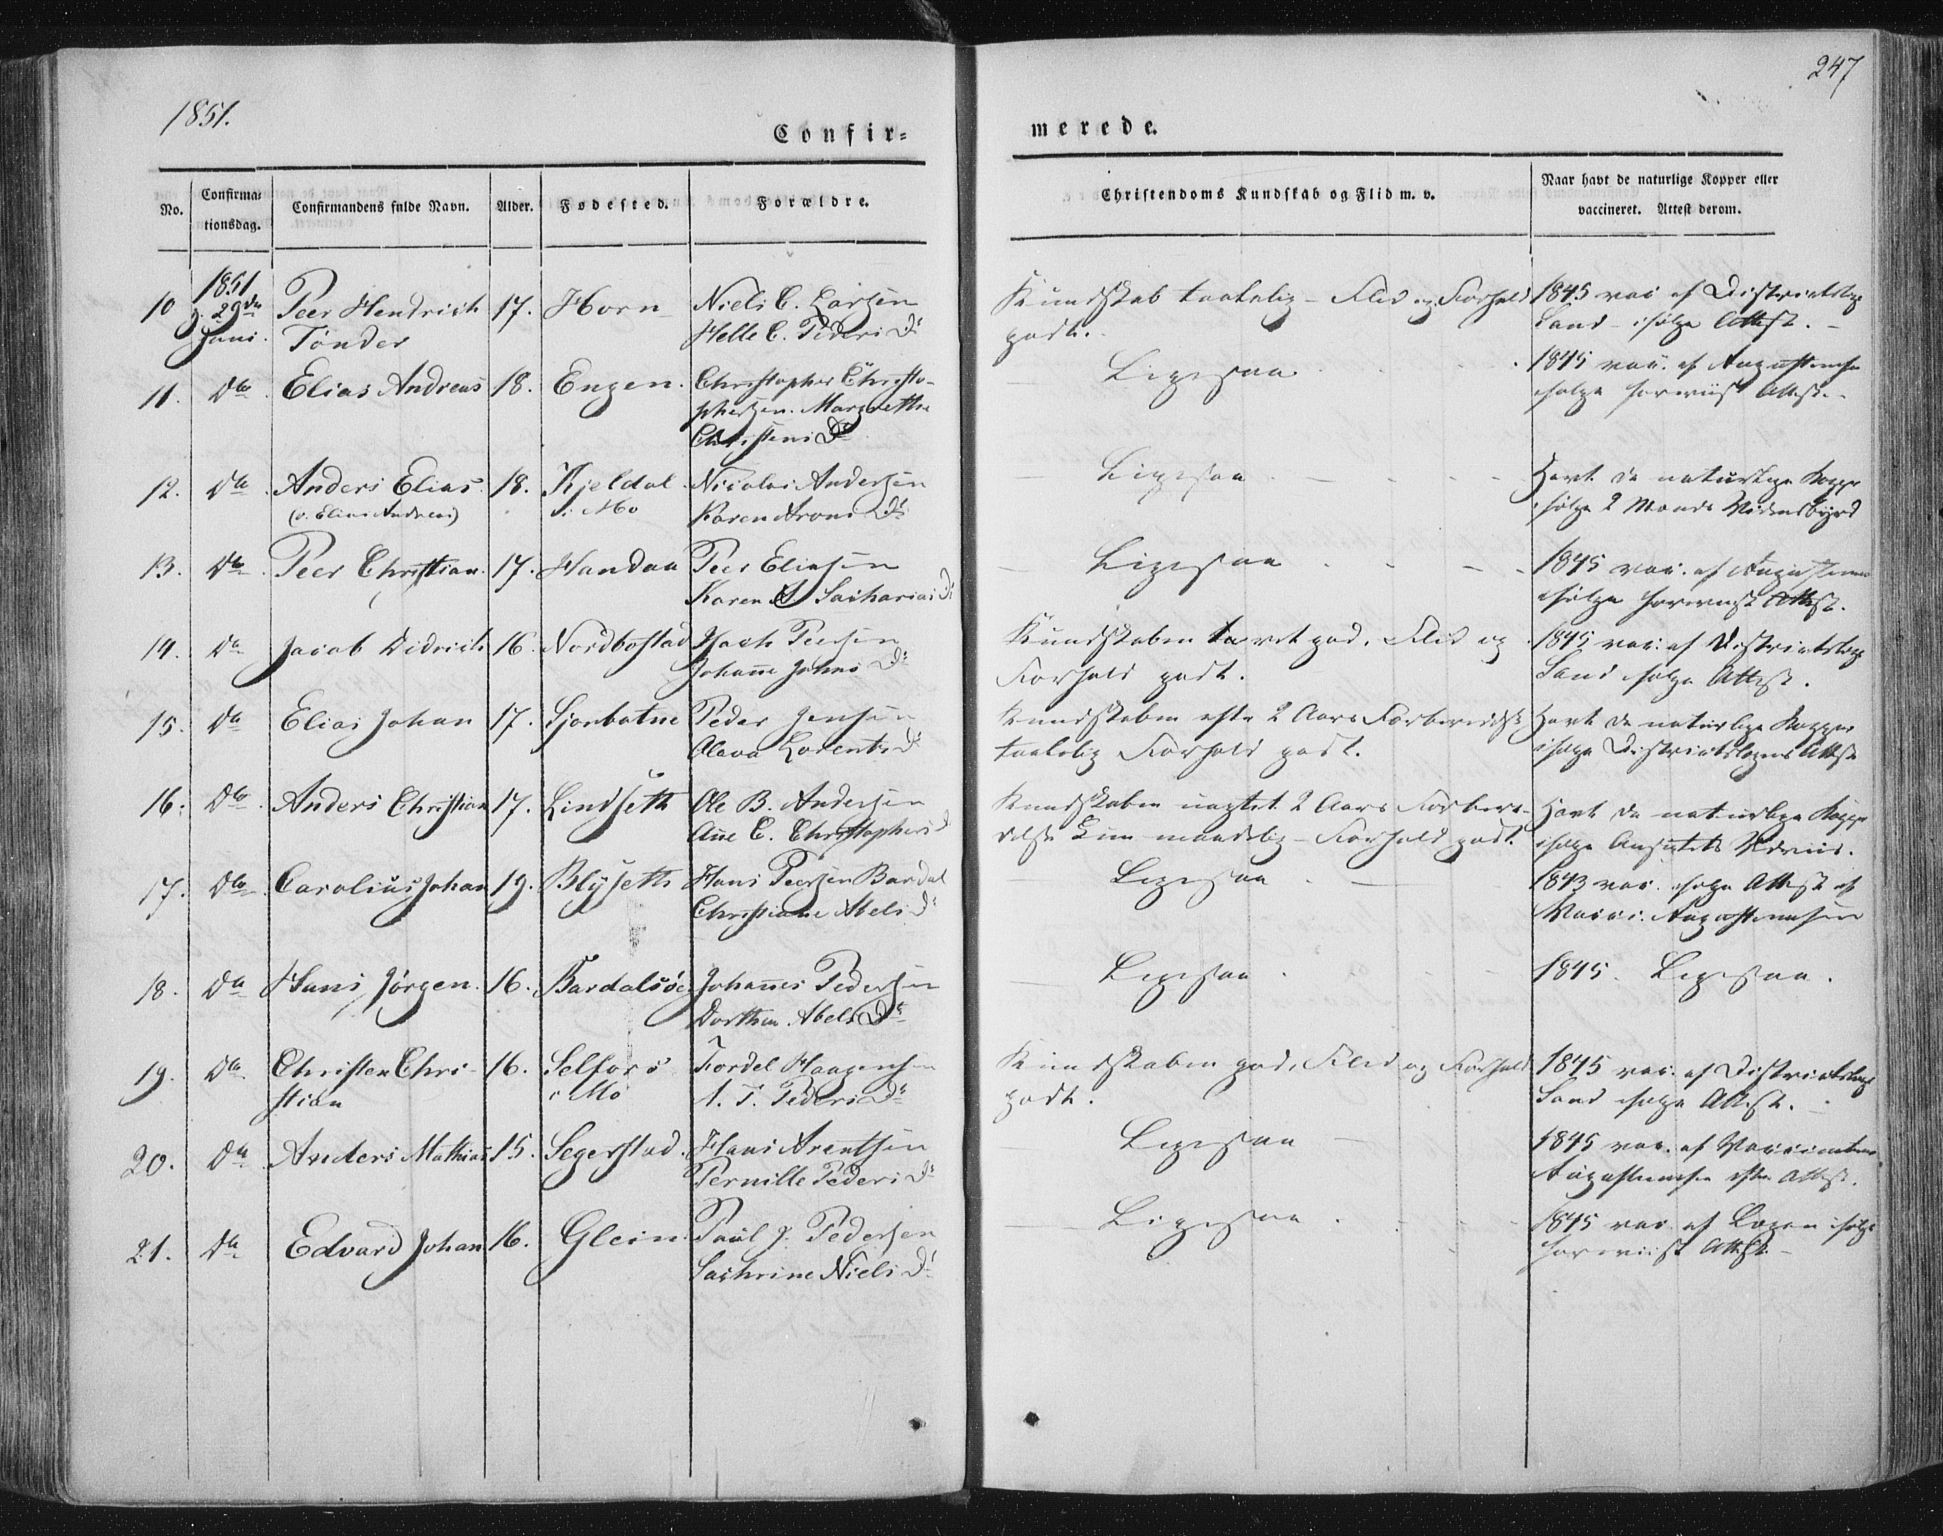 1851.
247
Confir=
merede.
No.
Confirma=
tionsdag.
Confirmandens fulde Navn.
Alder.
Fødested.
Forældre.
Christendoms Kundskab og Flid m. v.
Naar havt de naturlige Kopper eller
vaccineret. Attest derom.
10 1851 Peer Hendrich 17. Horn Niels C. Larsen Kundskab taalelig - Flid og Forhold 1845 vac. af Districtslæge
29de Juni. Tönder Helle C. Peders D. godt. Sand ifølge Attest.
11. Do Elias Andreas 18. Engen. Christopher Christo- Ligesaa 1845 vac. af Augustinusen
phersen. Margrethe ifølge foreviist Attest.
Christens D.
12. Do Anders Elias 18. Kjeldal Nicolai Andersen Ligesaa Havt de naturlige Kopper
(v. Elias Andreas) i Mo Karen Arons D. ifølge 2 Mænds Vidnesbyrd
13. Do Peer Christian 17. Handaa Peer Eliasen Ligesaa 1845 vac. af
Karen Sacharias D. ifølge foreviist Attest.
14. Do Jacob Didrich 16. Nordbostad Peersen Kundskaben god, Flid og 1845 vac. af Districtslæge
Johanne Johns D. Forhold godt. Sand ifølge Attest.
15. Do Elias Johan 17. Sjonbotne Peder Jensen Kundskaben efter 2 Aars Forberedelse Havt de naturlige Kopper
Olava Lorents D. taalelig Forhold godt. ifølge Districtslægens Attest
16. Do Anders Christian 17. Lindseth Ole B. Andersen Kundskaben uagtet 2 Aars Forbere- Havt de naturlige Kopper
Ane C. Christophers D. delse kun maadelig - Forhold godt. ifølge Ansigtets Udviis.
17. Do Carolius Johan 19. Blyseth Hans Peersen Bardal Ligesaa 1843 vac. ifølge Attest af
Christiane Abels D. Vacci. Augustinusen
18. Do Hans Jörgen. 16. Bardalsöe Johannes Pedersen Ligesaa 1845. Ligesaa.
Dorthea Abels D.
19. Do Christen Chri- 16. Selfors Tordel Haagensen Kundskaben god, Flid og Forhold 1845 vac. af Districtslæge
stian i Mo A. T. Peders D. godt. Sand ifølge Attest.
20. Do Anders Mathias 15. Segerstad. Hans Arentsen Ligesaa 1845 vac. af
Pernille Peders D. Augustinusen efter Attest.
21. Do Edvard Johan 16. Glein. Paul J. Pedersen Ligesaa 1845 vac. af Lægen ifølge
Sachrine Niels D. foreviist Attest